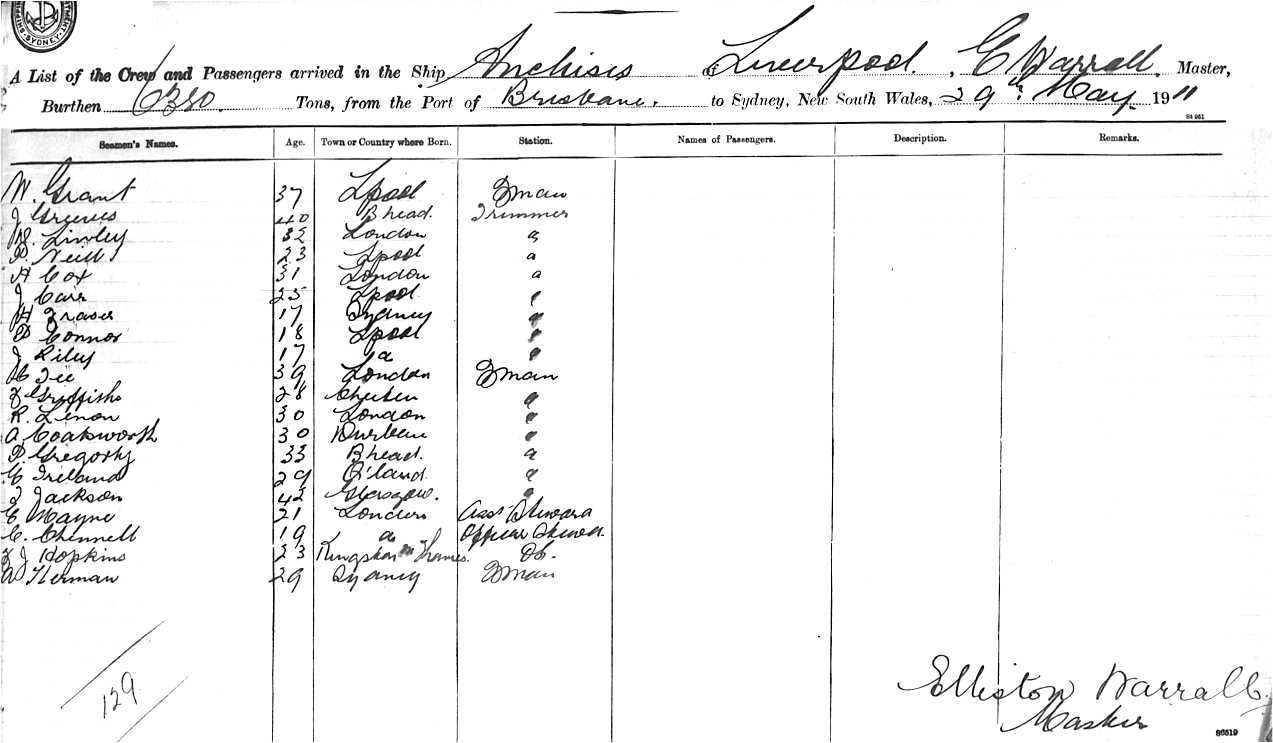 SYDNEY
A List of the Crew and Passengers arrived in the Ship Anchises of Liverpool, E Warrall, Master,
Burthen Tons, from the Port of Brisbane, to Sydney, New South Wales, 29th May 1911
S4 951
Seamen's Names. Age. Town or Country where Born. Station. Names of Passengers. Description. Remarks.
W. Grant 37 Lpool Fman
J Greeves 40 Bhead. Trimmer
Linley 32 London "
P. Neill 23 Lpool "
A Cox 31 London "
J Carr 25 Lpool "
H Fraser 17 Sydney "
P Connor 18 Lpool "
J Riley 17 " "
Tee 39 London Fman
J Griffiths 28 "
R. Lenon 30 London "
A Coakworth 30 Durban "
P. Gregory 33 Bhead. "
E Ireland 29 "
J Jackson 42 Glasgow. "
E Mayne 21 London Asst Steward
C. Chennell 19 " Officer Steward
F J Hopkins 23 Kingston on Thames. Do.
A Herman 29 Sydney Fman
129
Elliston Warrall
Master
S6519